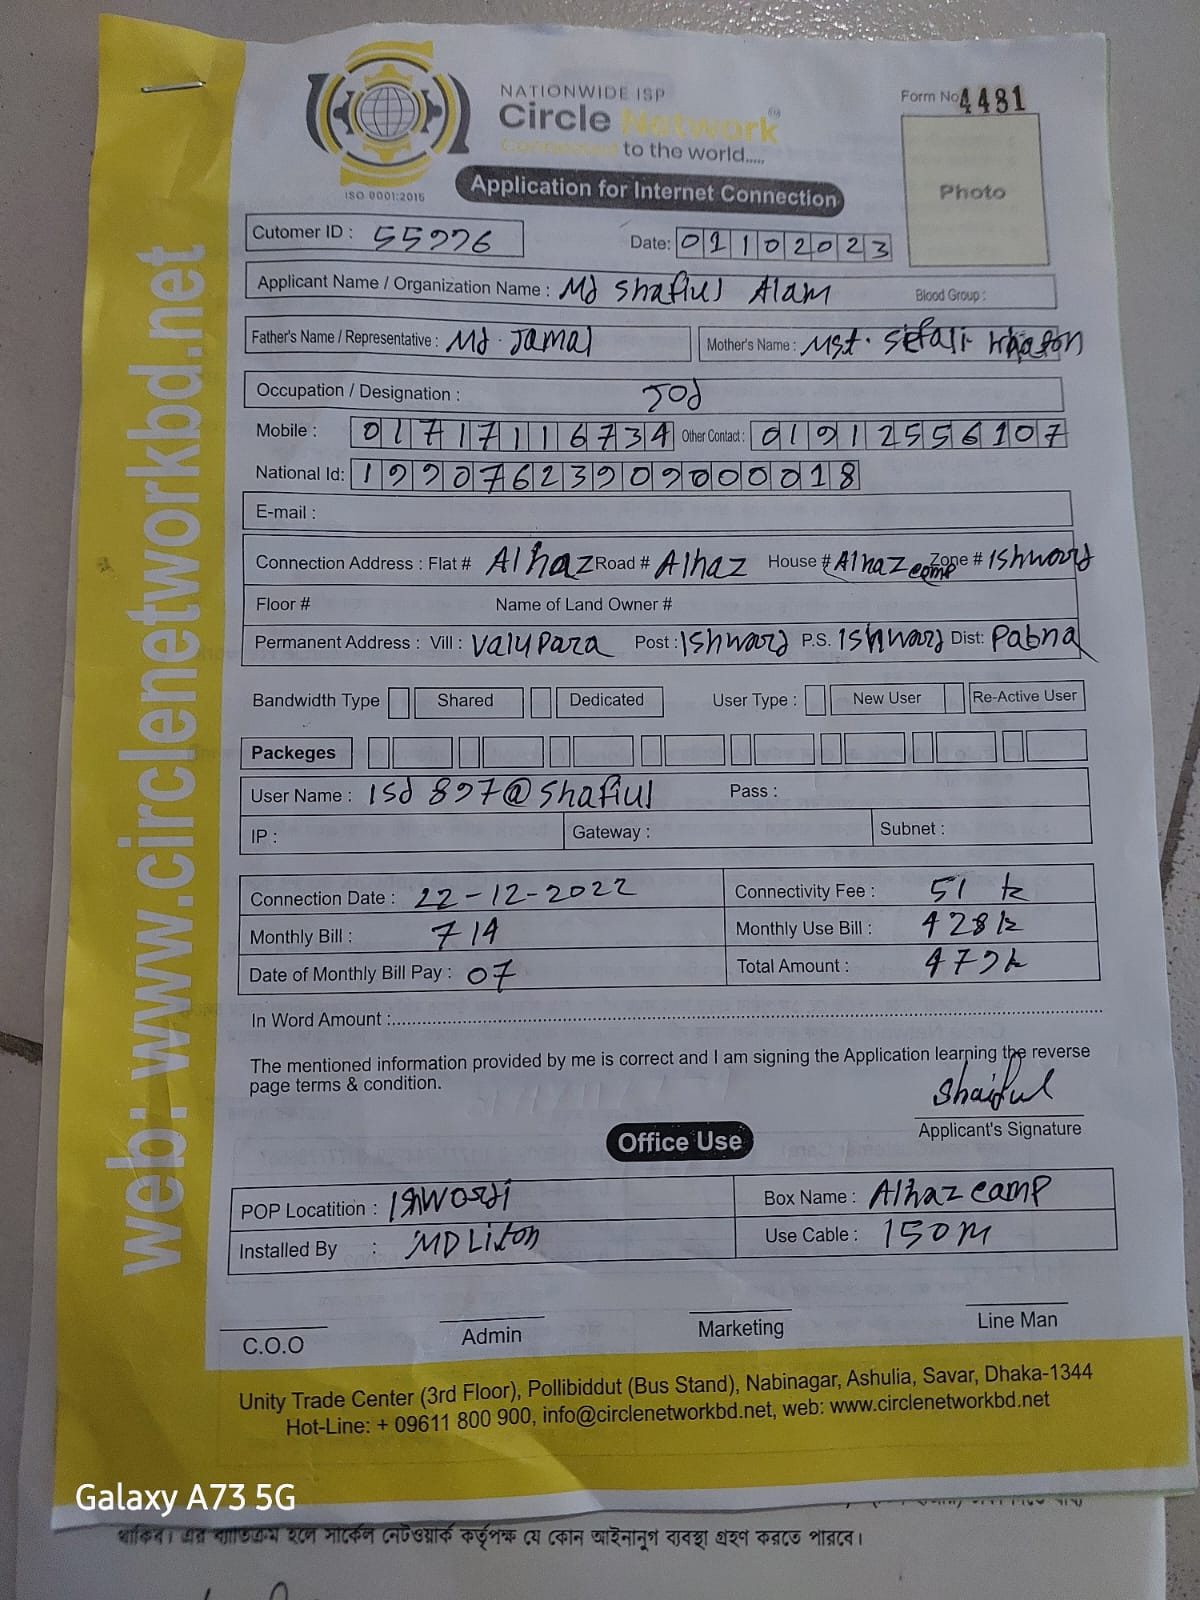 NATIONWIDE ISP
Circle Network
Connected to the world.....
ISO 9001:2015
Form No 4481
Photo
Application for Internet Connection
Cutomer ID : 55776
Date: 01102023
Applicant Name / Organization Name : Md Shafiul Alam Blood Group :
Father's Name / Representative : Md. Jamal Mother's Name : Mst. Sefali Khaton
Occupation / Designation : Job
Mobile : 01717116734 Other Contact : 01912556107
National Id: 19907623909000018
E-mail :
Connection Address : Flat # Alhaz Road # Alhaz House # Alhaz camp Zone # Ishward
Floor # Name of Land Owner #
Permanent Address : Vill : Valupara Post : Ishward P.S. Ishward Dist: Pabna
Bandwidth Type Shared Dedicated User Type : New User Re-Active User
Packeges
User Name : isd 897@shafiul Pass :
IP : Gateway : Subnet :
Connection Date : 22-12-2022 Connectivity Fee : 51 tk
Monthly Bill : 714 Monthly Use Bill : 428 tk
Date of Monthly Bill Pay : 07 Total Amount : 479 tk
In Word Amount :
The mentioned information provided by me is correct and I am signing the Application learning the reverse
page terms & condition.
Shaiful
Applicant's Signature
Office Use
POP Locatition : Ishwordi Box Name : Alhaz camp
Installed By : MD Liton Use Cable : 150 M
C.O.O Admin Marketing Line Man
Unity Trade Center (3rd Floor), Pollibiddut (Bus Stand), Nabinagar, Ashulia, Savar, Dhaka-1344
Hot-Line: + 09611 800 900, info@circlenetworkbd.net, web: www.circlenetworkbd.net
web: www.circlenetworkbd.net
Galaxy A73 5G
থাকিব। এর ব্যতিক্রম হলে সার্কেল নেটওয়ার্ক কর্তৃপক্ষ যে কোন আইনানুগ ব্যবস্থা গ্রহণ করতে পারবে।